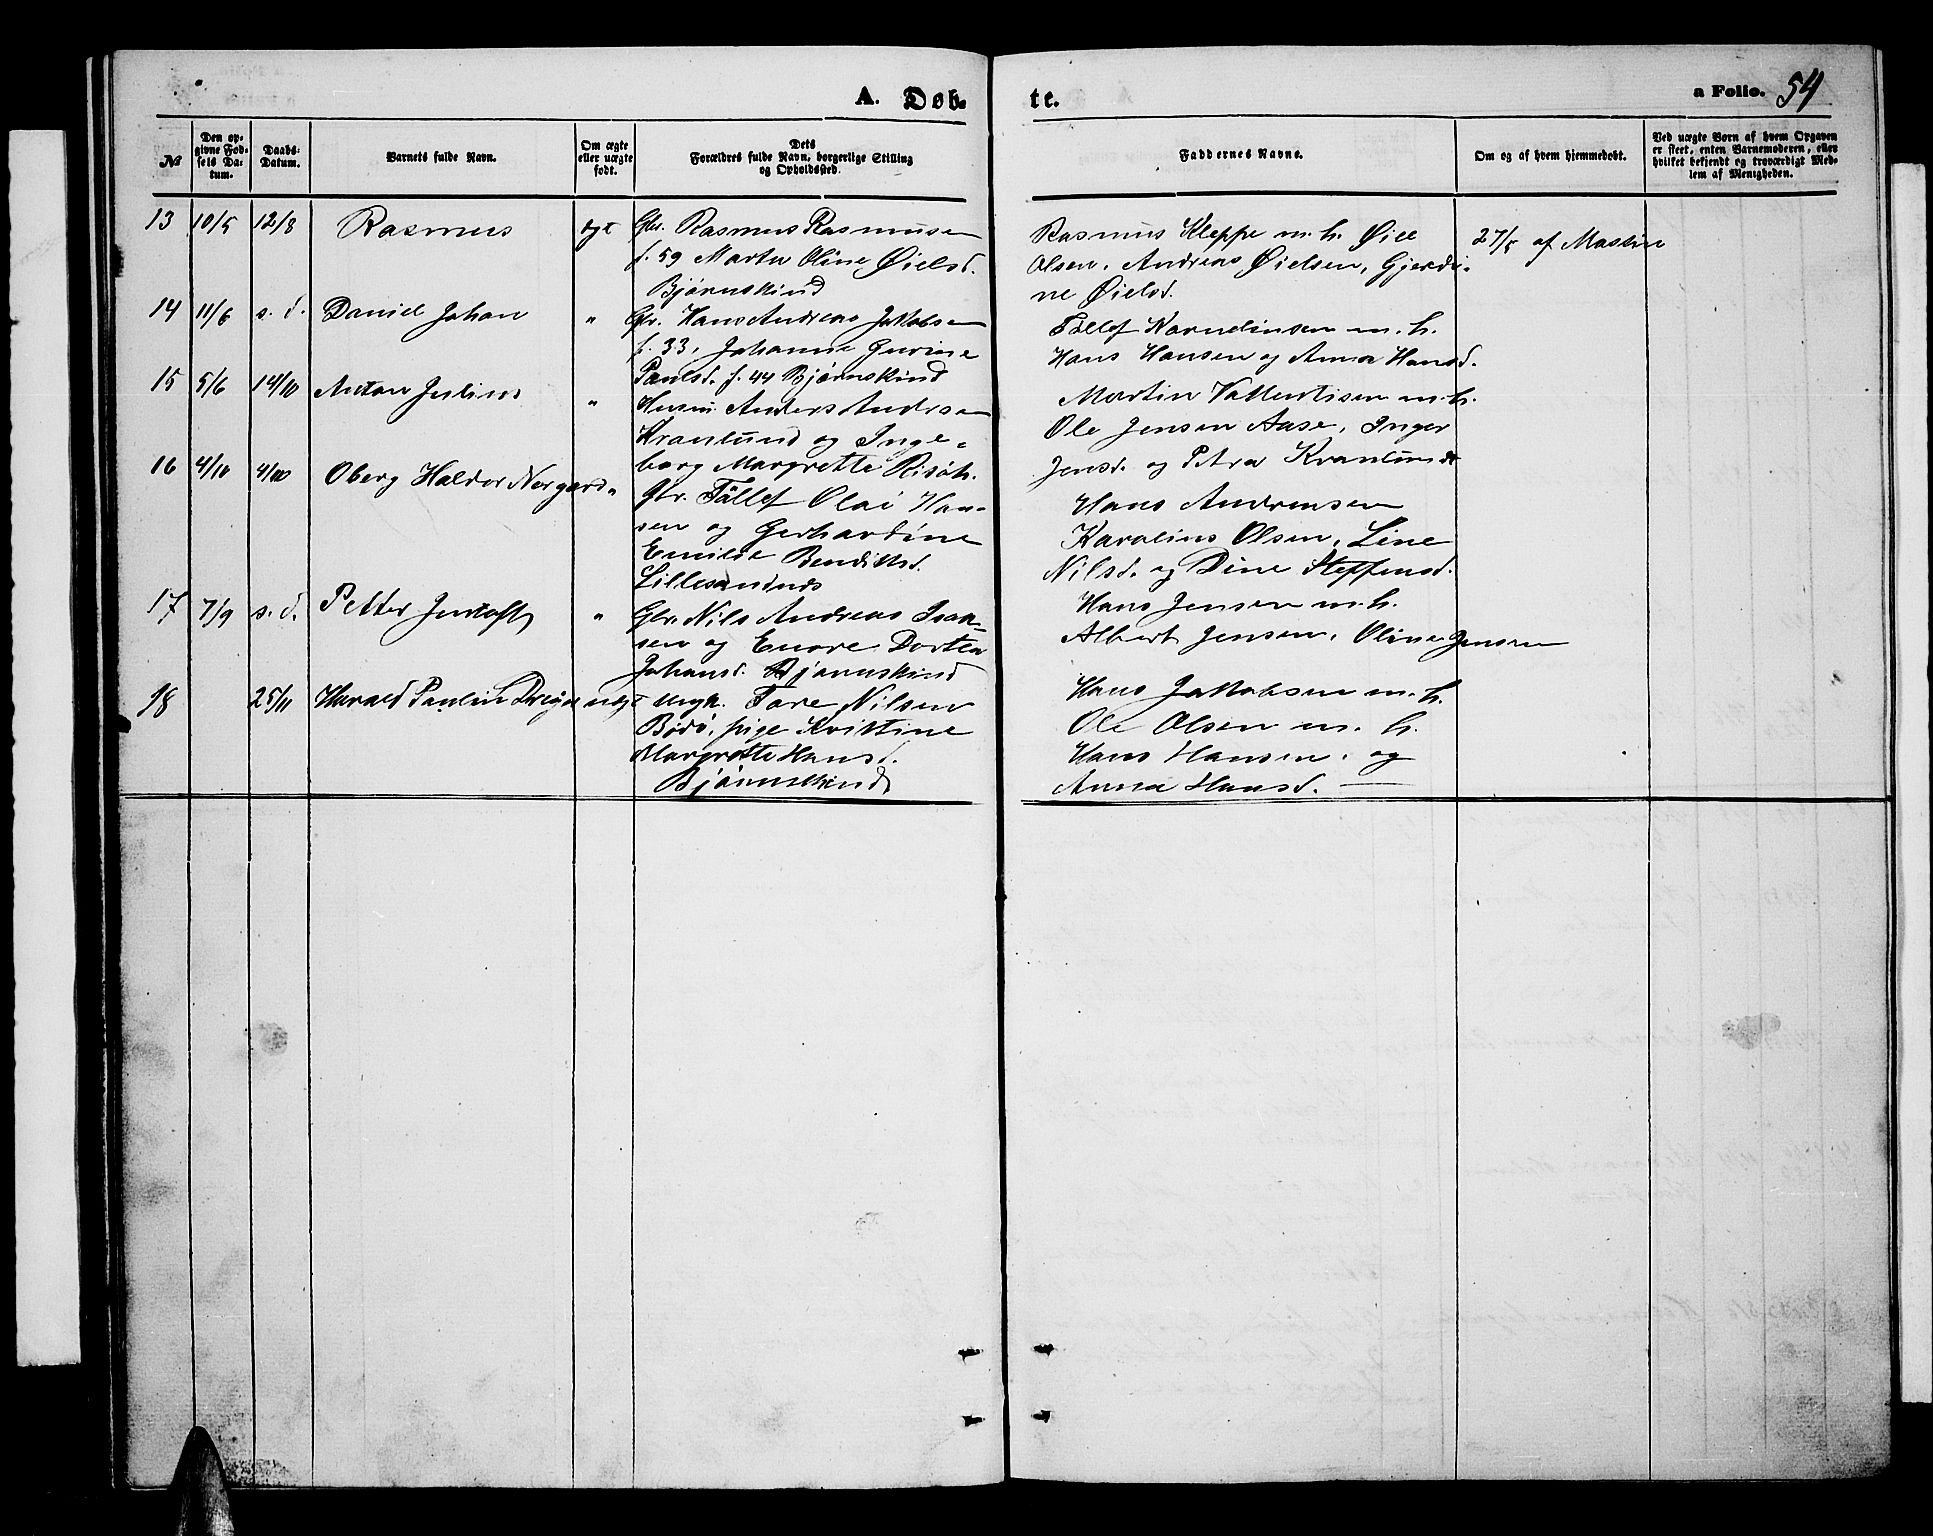 A. Døb-
te.
a Folio. 54
№
Den op-
givne Fød-
sels Da-
tum.
Daabs-
Datum.
Barnets fulde Navn.
Om ægte
eller uægte
født.
Dets
Forældres fulde Navn, borgerlige Stilling
og Opholdssted.
Faddernes Navne.
Om og af hvem hjemmedøbt.
Ved uægte Børn af hvem Opgaven
er skeet, enten Barnemoderen, eller
hvilket bekjendt og troværdigt Med-
lem af Menigheden.
13 10/5 12/8 Rasmus ægt Gbr. Rasmus Rasmusen
f. 59 Marta Oline Øielsd.
Bjørnskind
Rasmus Kleppe m. h. Øiel
Olsen, Andreas Øielsen, Gjerdi-
ne Øielsd.
27/5 af Maskine
14 11/6 s. d. Daniel Johan " Gbr. Hans Andreas Jakobsen
f. 33, Johanna Gurine
Paulsd. f. 44 Bjørnskind
Tollef Karneliusen m. h.
Hans Hansen og Anna Hansd.
15 5/6 14/10 Anton Julius " Husm. Anders Andrsen
Kranlund og Inge-
borg Margrette Risøh.
Martin Vallentisen m. h.
Ole Jensen Aase, Inger
Jensd. og Petra Kranlund
16 4/10 4/10 Oberg Haldor Norgard " Gbr. Töllef Olai Han-
sen og Gerhardine
Emilie Bendiksd.
Lillesaninds
Hans Andrensen
Karolius Olsen, Line
Nilsd. og Dine Steffensd.
17 7/9 s. d. Petter Jentoft " Gbr. Nils Andreas Isak-
sen og Enore Dortea
Johansd. Bjørnskind
Hans Jensen m. h.
Albert Jensen, Oline Jensen
18 25/11 Harald Paulin Dreyer uægt Ungk. Tore Nilsen
Bodø, pige Kristine
Margrette Hansd.
Bjørnskind
Hans Jakobsen m. h.
Ole Olsen m. h.
Hans Hansen, og
Anna Hansd.